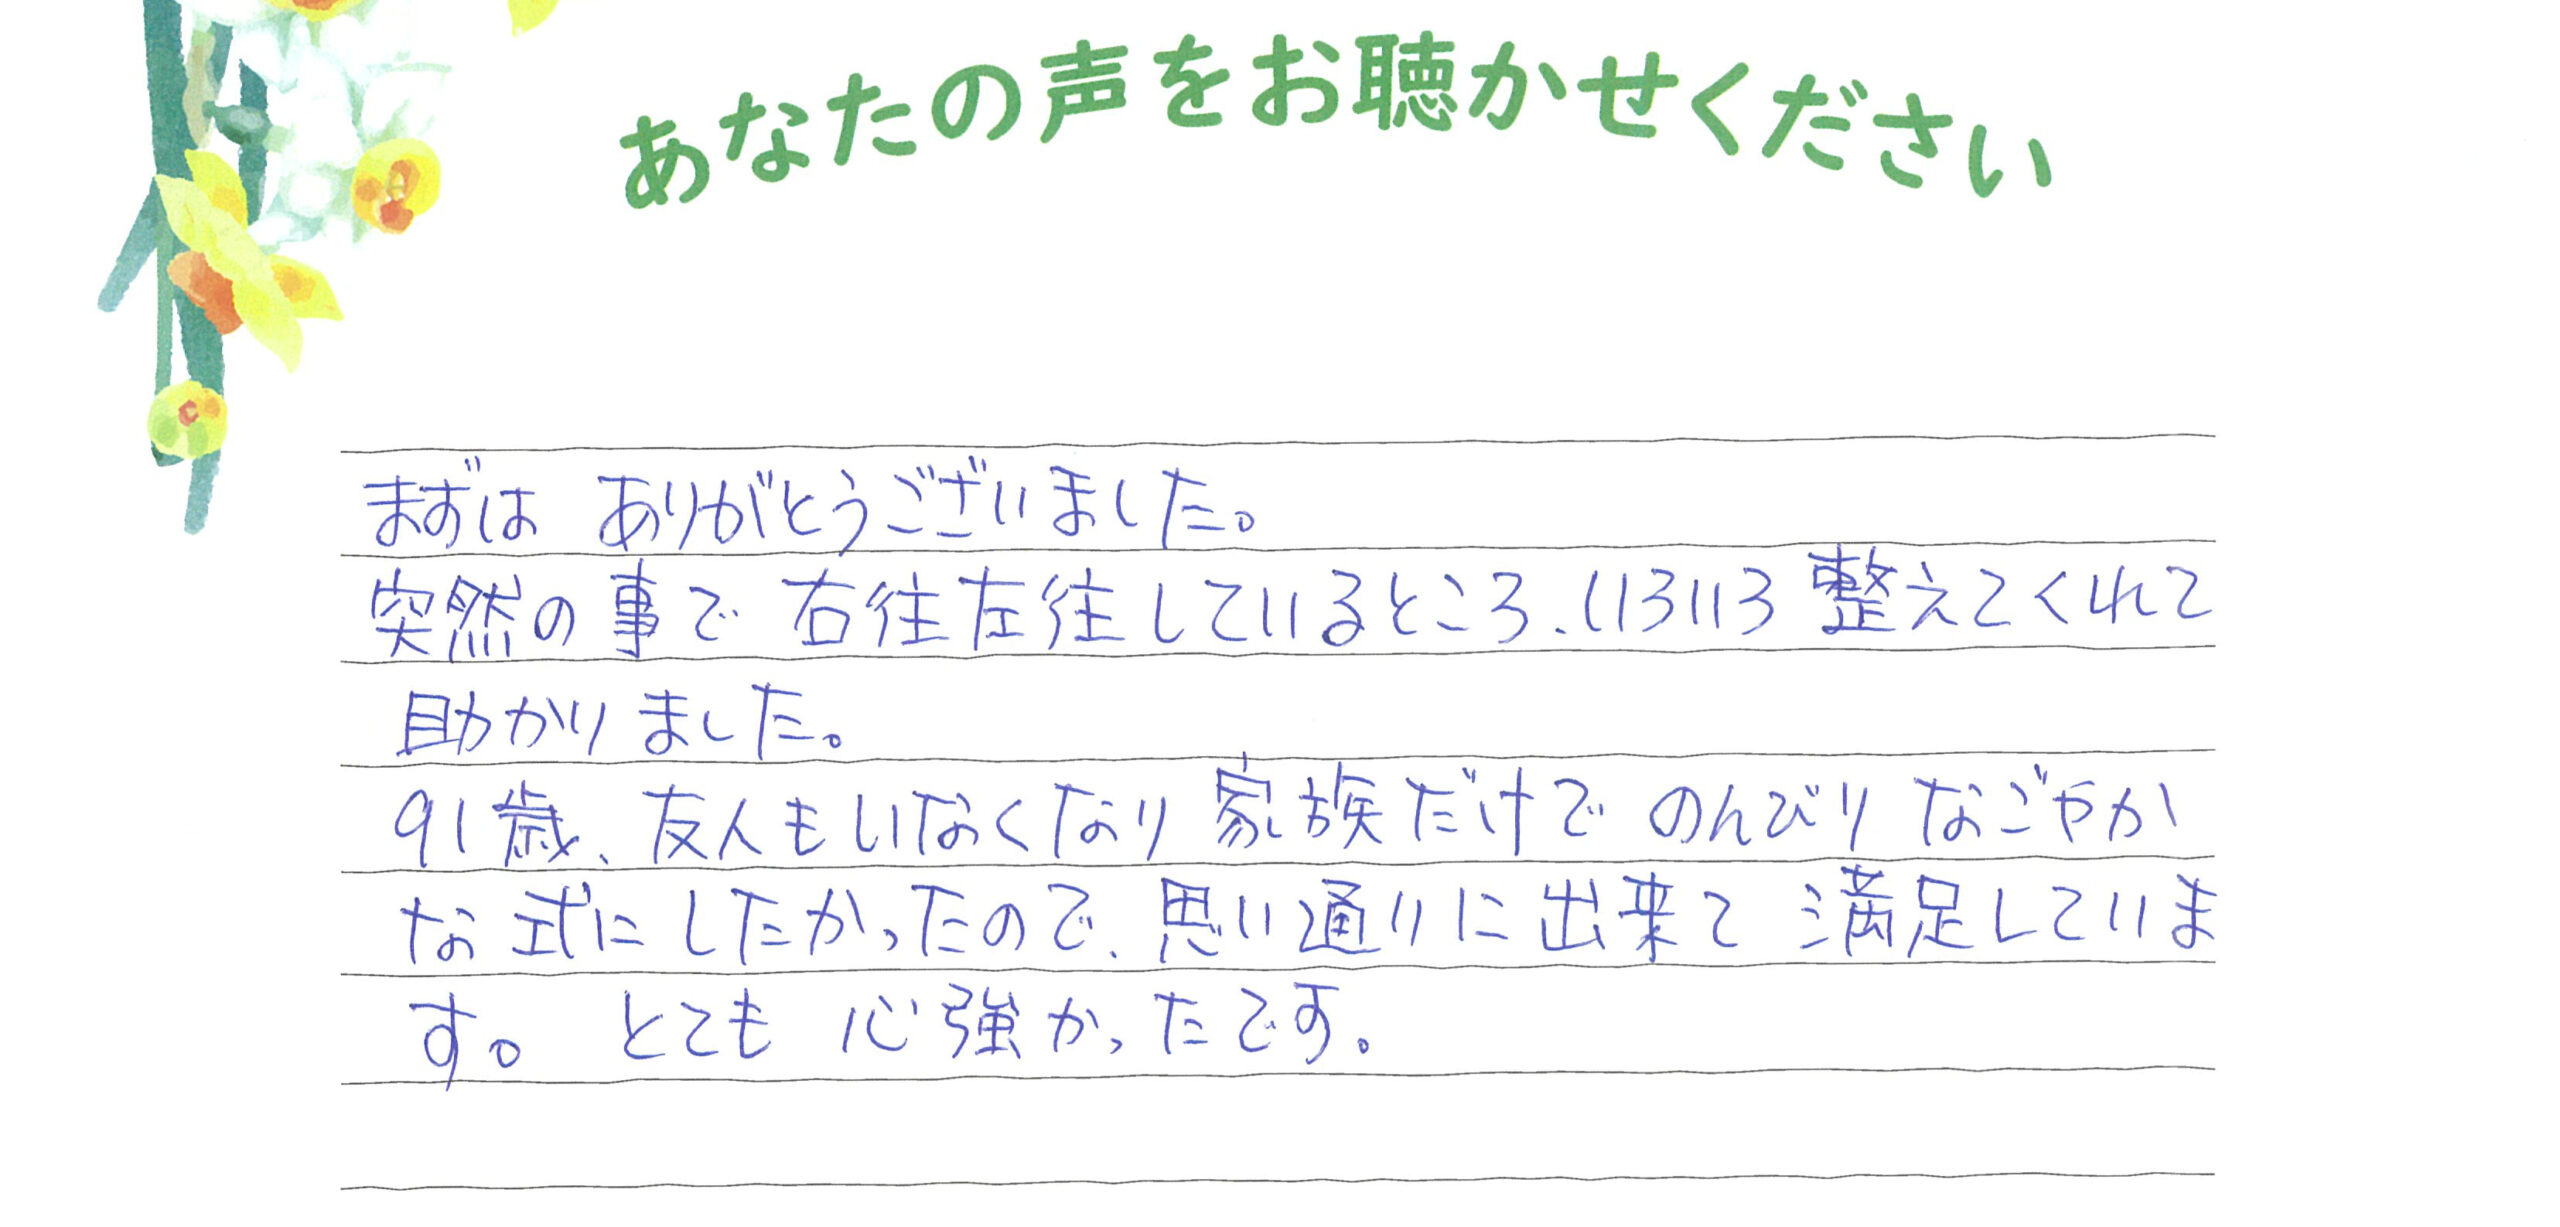 あなたの声をお聴かせください
まずは ありがとうございました。
突然の事で 右往左往しているところ、いろいろ 整えてくれて
助かりました。
91歳、友人もいなくなり 家族だけで のんびり なごやか
な 式にしたかったので、思い通りに 出来て 満足していま
す。 とても 心強かったです。